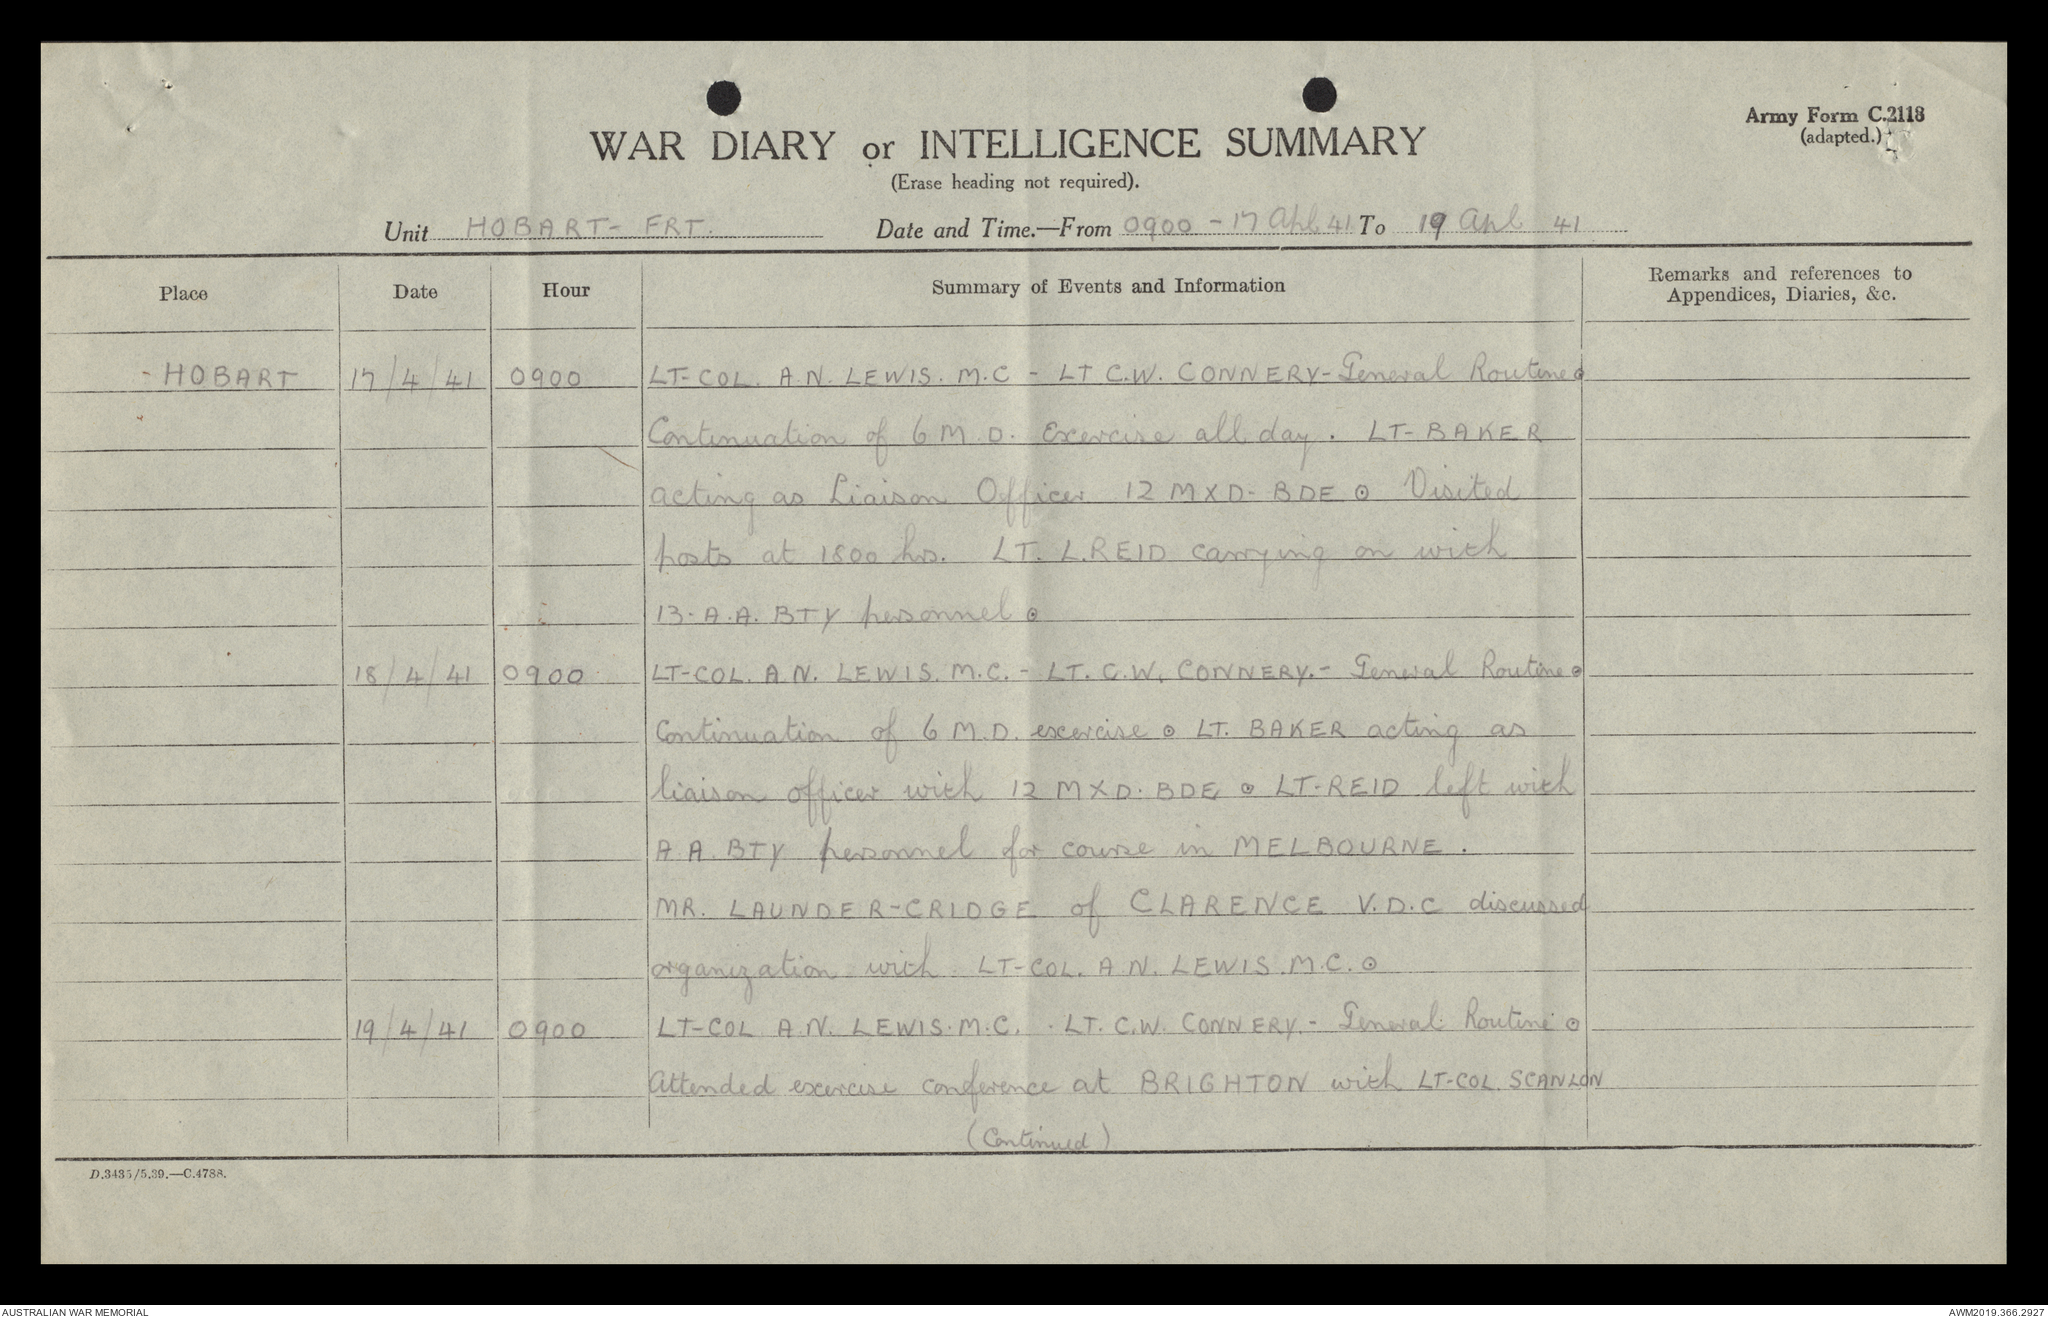 Army Form C.2118
(adapted.)
WAR DIARY or INTELLIGENCE SUMMARY
(Erase heading not required).
Unit HOBART- FRT. Date and Time.—From 0900 - 17 Apl. 41. To 19 Apl 41
Place Date Hour Summary of Events and Information Remarks and references to
Appendices, Diaries, &c.
- HOBART 17/4/41 0900 LT-COL. A.N. LEWIS. M.C - LT C.W. CONNERY- General Routine ⊙
Continuation of 6 M.D. Excercise all day. LT- BAKER
acting as Liaison Officer 12 MXD- BDE ⊙ Visited
posts at 1800 hrs. LT. L. REID carrying on with
13- A.A. BTY personnel ⊙
18/4/41 0900 LT-COL. A.N. LEWIS. M.C. - LT. C.W. CONNERY.- General Routine ⊙
Continuation of 6 M.D. excercise ⊙ LT. BAKER acting as
liaison officer with 12 MXD. BDE ⊙ LT-REID left with
A.A. BTY personnel for course in MELBOURNE.
MR. LAUNDER-CRIDGE of CLARENCE V.D.C discussed
organization with LT-COL. A.N. LEWIS. M.C. ⊙
19/4/41 0900 LT-COL A.N. LEWIS. M.C. . LT. C.W. CONNERY.- General Routine ⊙
Attended excercise conference at BRIGHTON with LT-COL. SCANLON
(Continued)
D.3435/5.39.—C.4788.
AUSTRALIAN WAR MEMORIAL AWM2019.366.2927